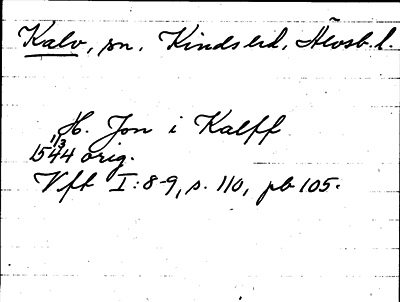 Kalv, sn, Kinds hd, Älvsb. l.
H. Jon i Kalff
1544 11/3 orig.
Vft I:8-9, s. 110, pb 105.